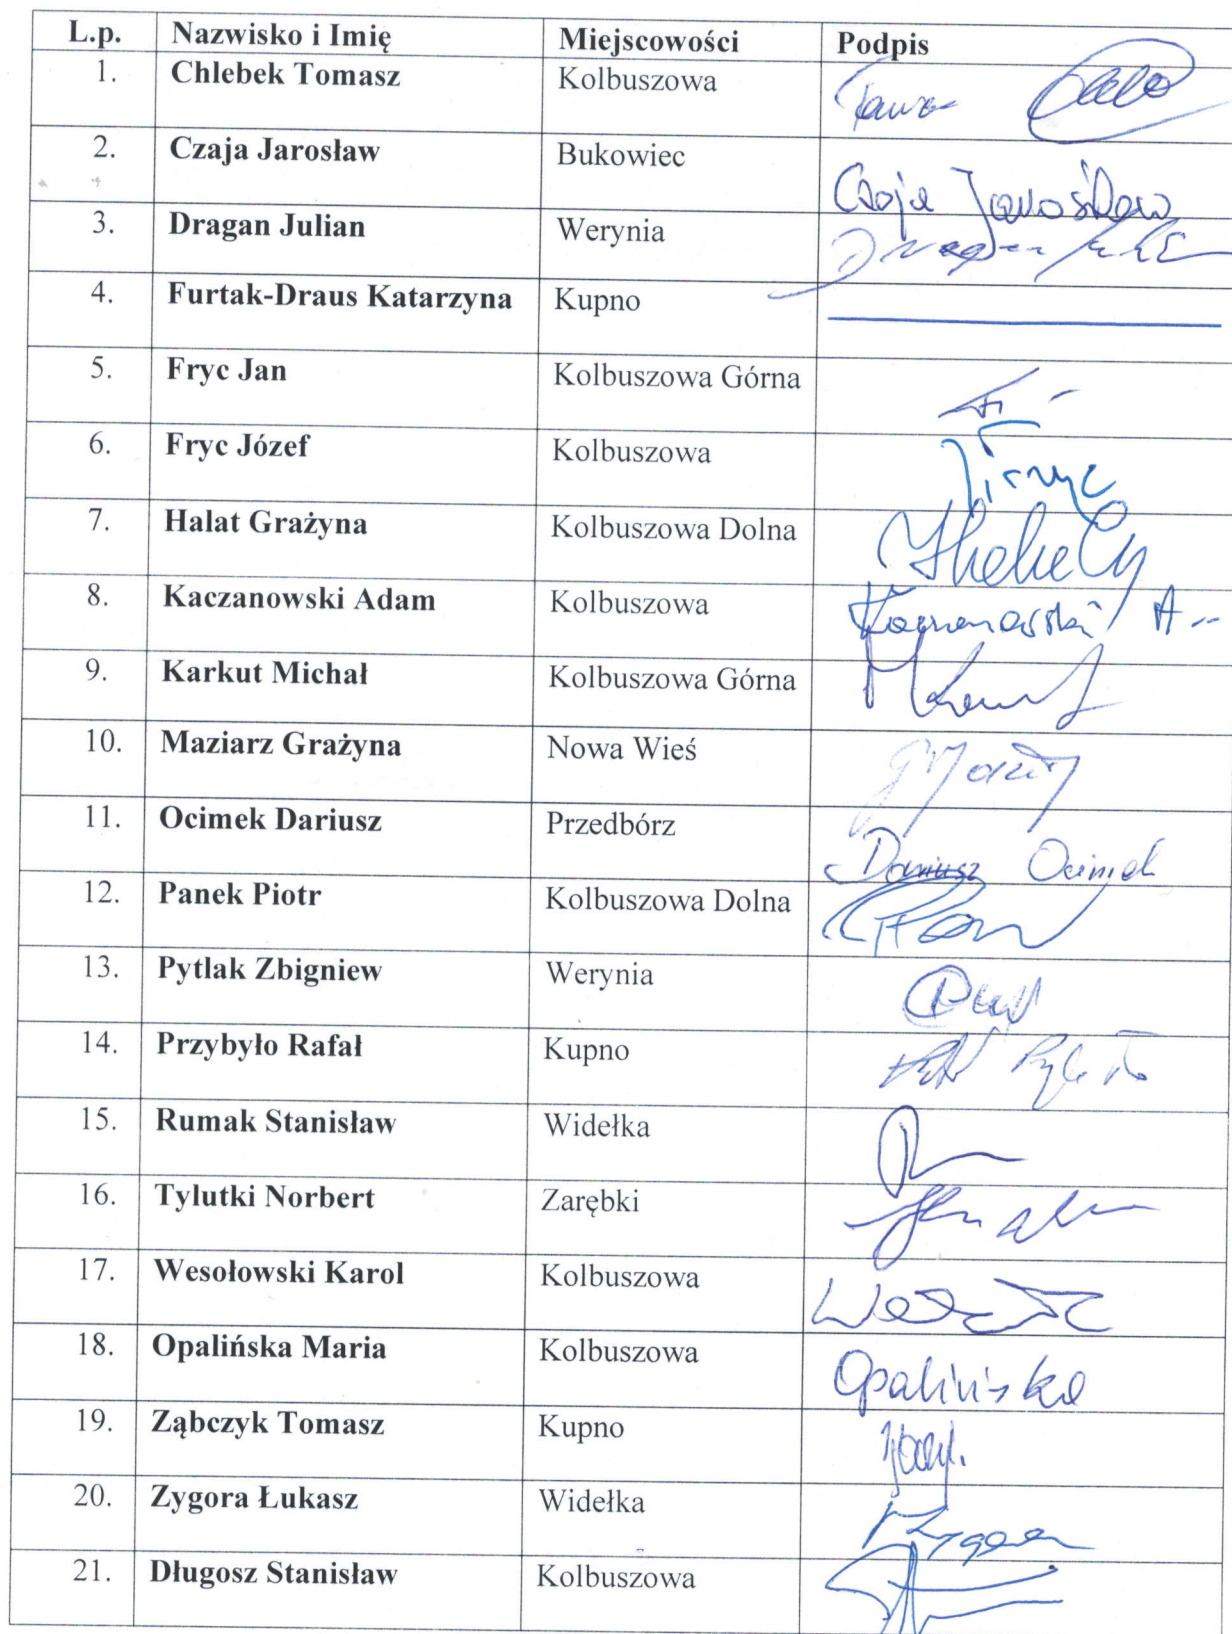 L.p. Nazwisko i Imię Miejscowości Podpis
1. Chlebek Tomasz Kolbuszowa
2. Czaja Jarosław Bukowiec Czaja Jarosław
3. Dragan Julian Werynia Dragan
4. Furtak-Draus Katarzyna Kupno
5. Fryc Jan Kolbuszowa Górna
6. Fryc Józef Kolbuszowa Fryc
7. Halat Grażyna Kolbuszowa Dolna
8. Kaczanowski Adam Kolbuszowa Kaczanowski A
9. Karkut Michał Kolbuszowa Górna
10. Maziarz Grażyna Nowa Wieś
11. Ocimek Dariusz Przedbórz Dariusz Ocimek
12. Panek Piotr Kolbuszowa Dolna
13. Pytlak Zbigniew Werynia
14. Przybyło Rafał Kupno
15. Rumak Stanisław Widełka
16. Tylutki Norbert Zarębki
17. Wesołowski Karol Kolbuszowa
18. Opalińska Maria Kolbuszowa Opalińska
19. Ząbczyk Tomasz Kupno
20. Zygora Łukasz Widełka
21. Długosz Stanisław Kolbuszowa